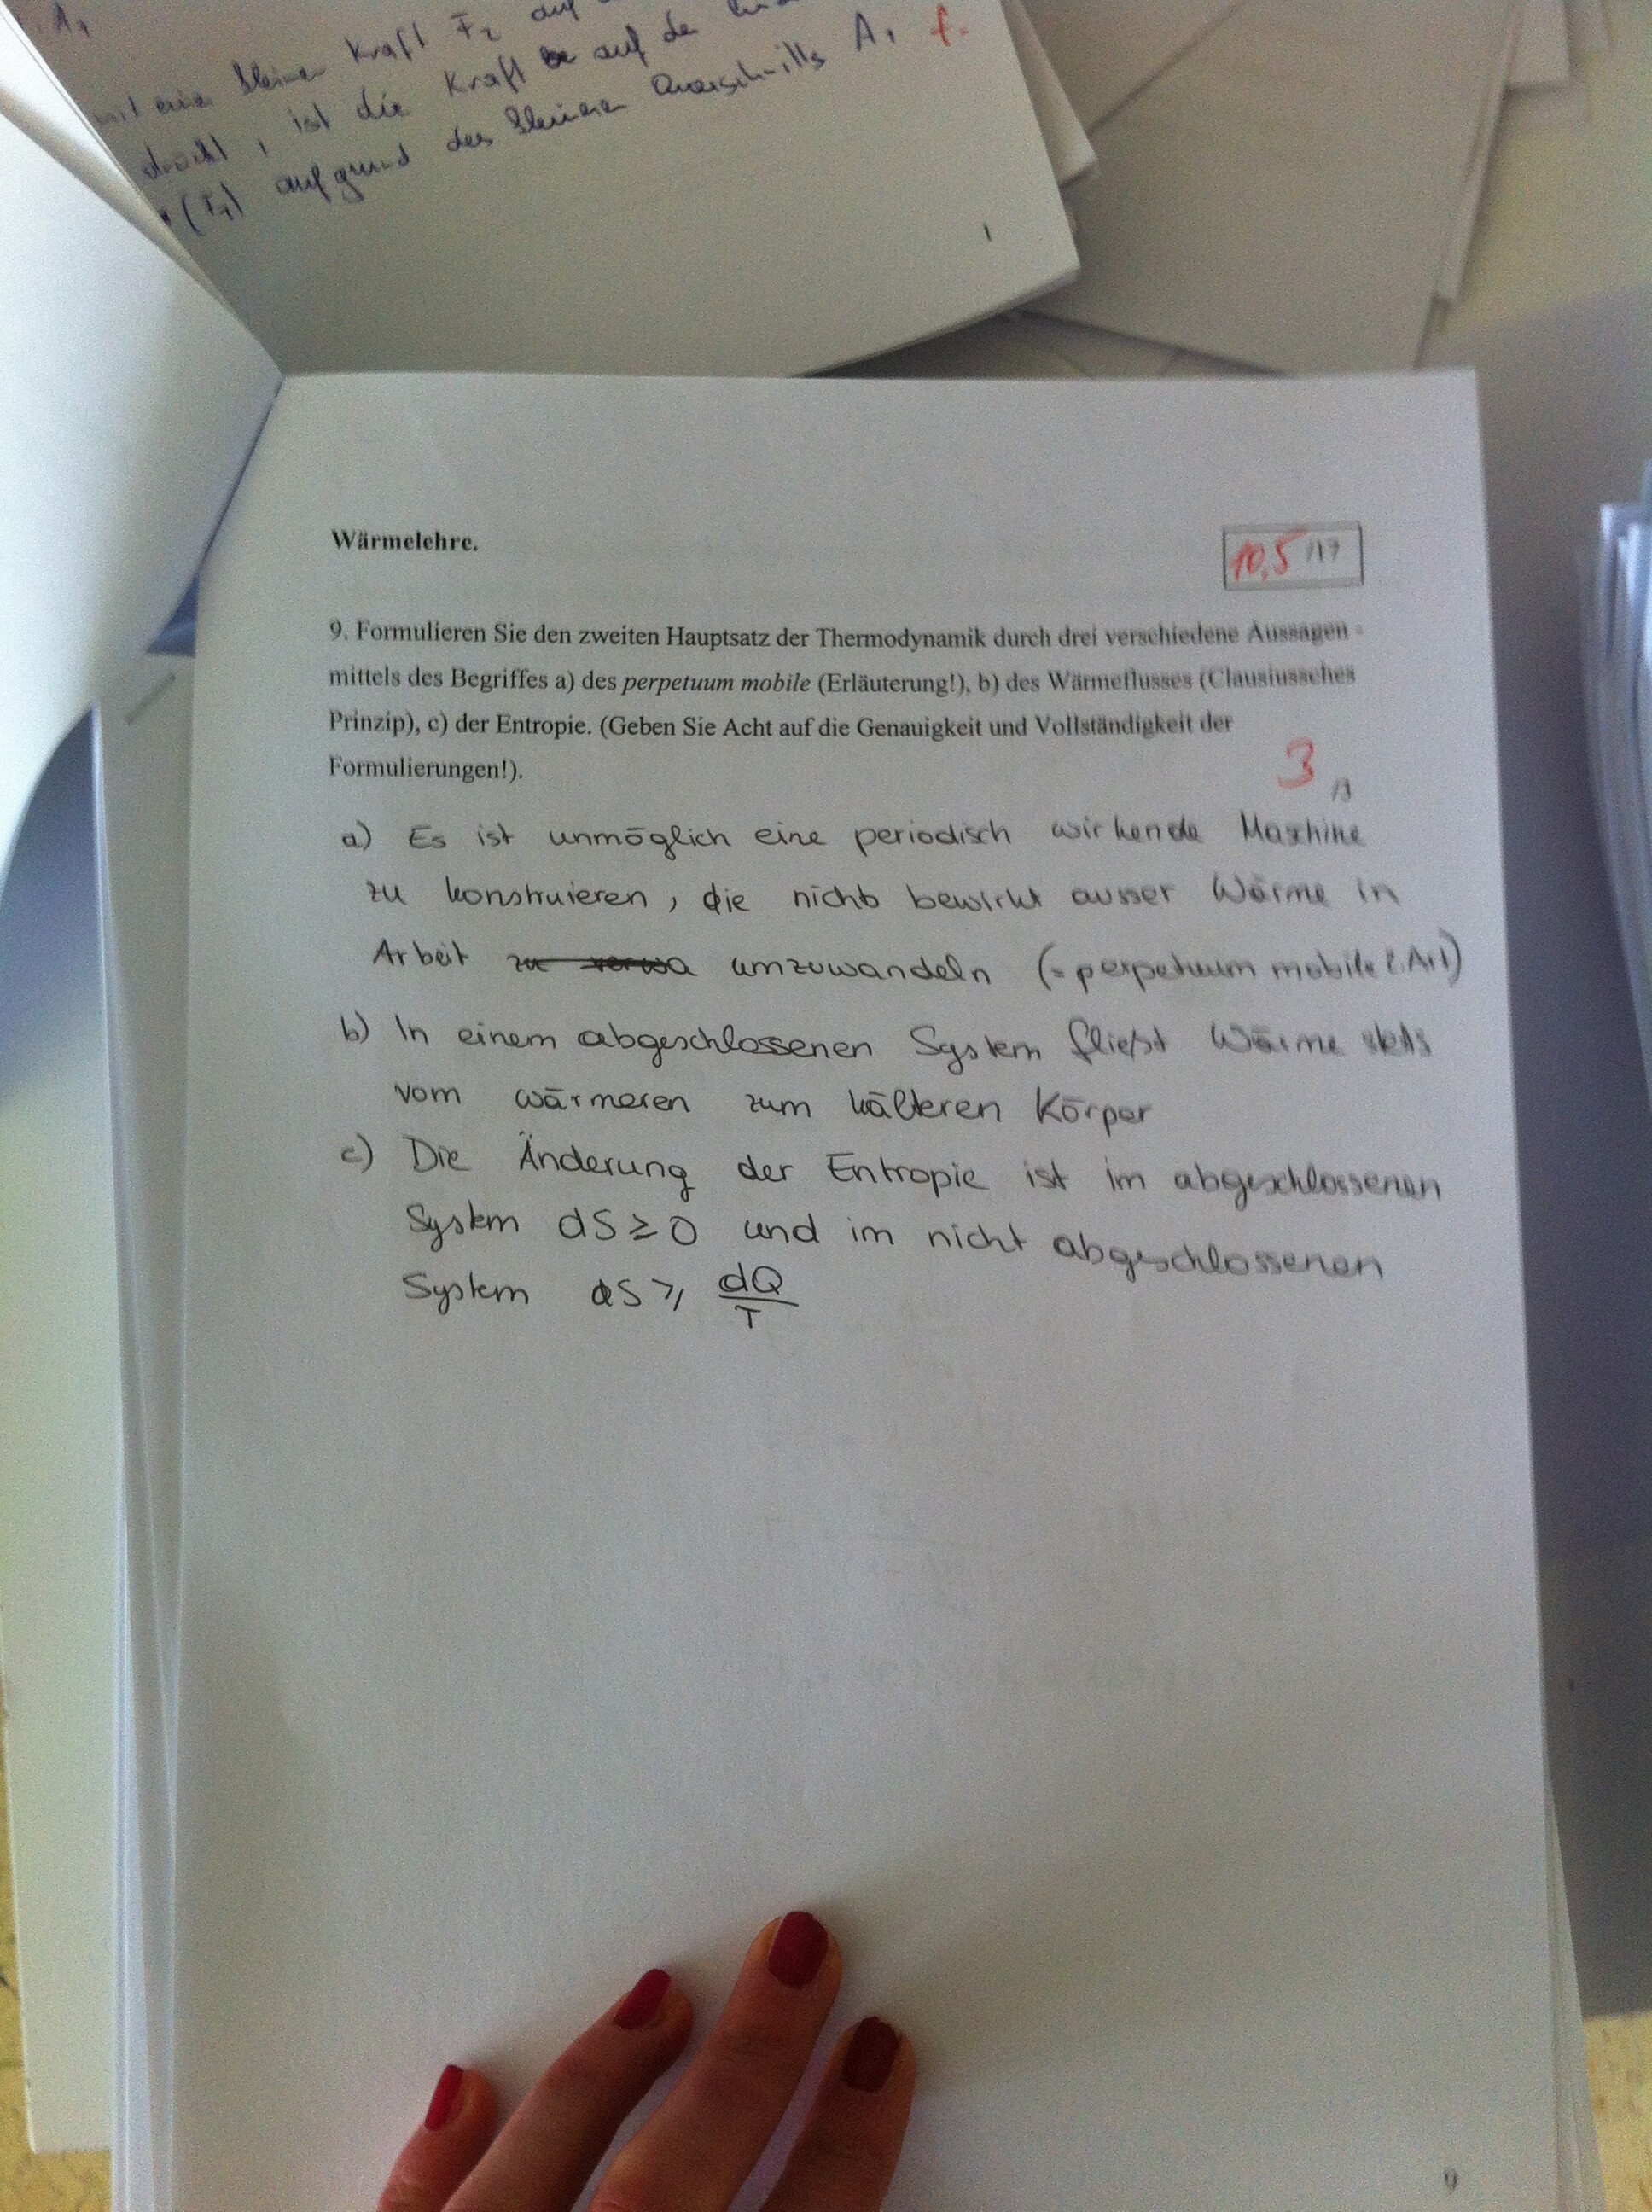 A₁
kleinen Kraft F₂ auf
ist die Kraft auf de
(F₁) aufgrund des kleineren Querschnitts A₁ f.
1
Wärmelehre.
10,5 /17
9. Formulieren Sie den zweiten Hauptsatz der Thermodynamik durch drei verschiedene Aussagen
mittels des Begriffes a) des perpetuum mobile (Erläuterung!), b) des Wärmeflusses (Clausiussches
Prinzip), c) der Entropie. (Geben Sie Acht auf die Genauigkeit und Vollständigkeit der
Formulierungen!).
3 /3
a) Es ist unmöglich eine periodisch wirkende Maschine
zu konstruieren, die nichts bewirkt ausser Wärme in
Arbeit zu verwa umzuwandeln (= perpetuum mobile 2. Art)
b) In einem abgeschlossenen System fließt Wärme stets
vom wärmeren zum kälteren Körper
c) Die Änderung der Entropie ist im abgeschlossenen
System dS ≥ 0 und im nicht abgeschlossenen
System dS ≥ dQ/T